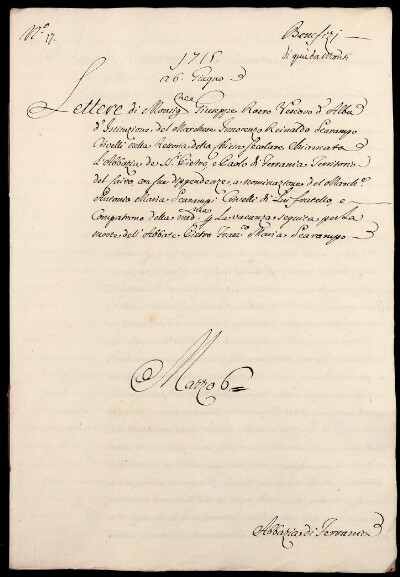 N.º 17.
Benefizi
di quà da Monti
1716
a 6. Giugno
Lettere di Monsig.nore Giuseppe Roero Vescovo d'Alba
d'Istituzione del Marchese Innocenzo Reinaldo Scarampo
Crivelli nella Rettoria della Chiesa Secolare chiamata
L'Abbazia de SS. Pietro, e Paolo di Ferrania Territorio
del Cairo, con sue dippendenze, a nominazione del March.e
Antonio Maria Scarampi Crivelli di Lui fratello, e
Compatrono della med.ma p la vacanza seguita per La
morte dell'Abbate Pietro Fran.co Maria Scarampo
Mazzo 6
Abbazia di Ferrania